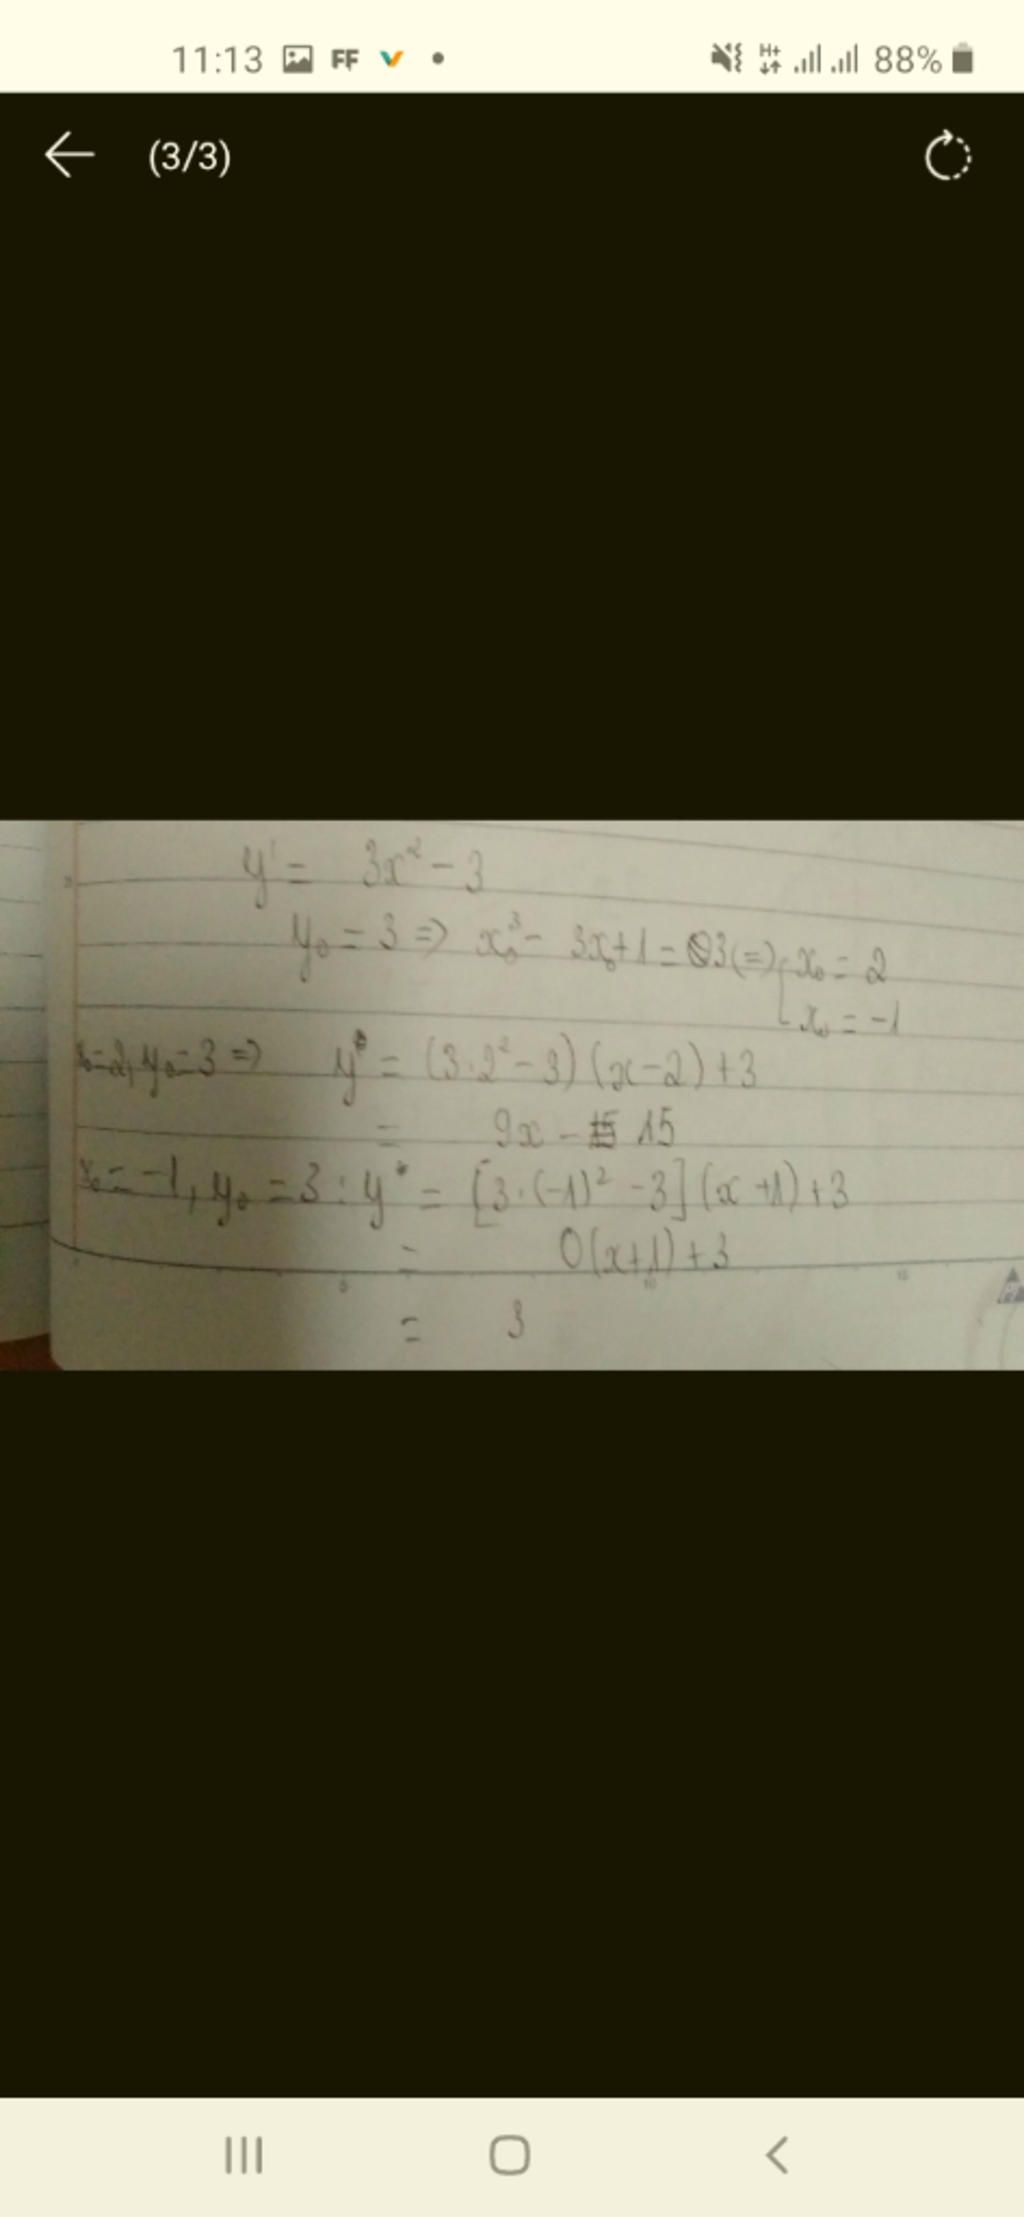 11:13 FF H+ 88%
(3/3)
y' = 3x² - 3
y₀ = 3 => x₀³ - 3x₀ + 1 = 3 (=) [ x₀ = 2
x₀ = -1
x₀ = 2, y₀ = 3 => y = (3.2² - 3)(x - 2) + 3
= 9x - 15
x₀ = -1, y₀ = 3 : y = [3.(-1)² - 3](x + 1) + 3
= 0(x+1) + 3
= 3